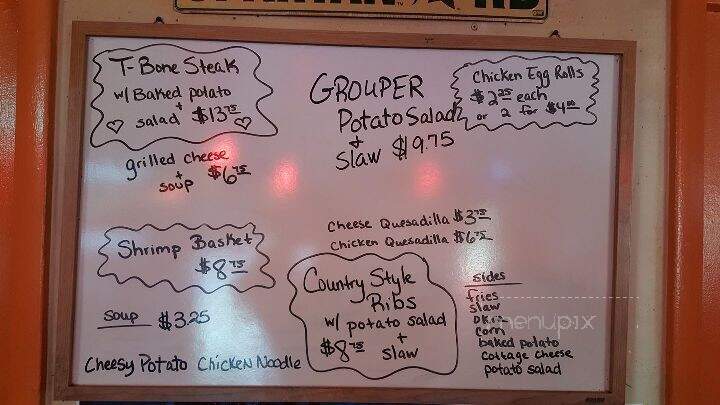 T-Bone Steak
w/ Baked potato
+
salad $13.75
grilled cheese
+
soup $6.75
Shrimp Basket
$8.75
soup $3.25
Cheesy Potato Chicken Noodle
GROUPER
Potato Salad
+
Slaw $9.75
Chicken Egg Rolls
$2.25 each
or 2 for $4.00
Cheese Quesadilla $3.75
Chicken Quesadilla $6.75
Country Style
Ribs
w/ potato salad
+
$8.75 slaw
sides
fries
slaw
okra
corn
baked potato
cottage cheese
potato salad
menupix